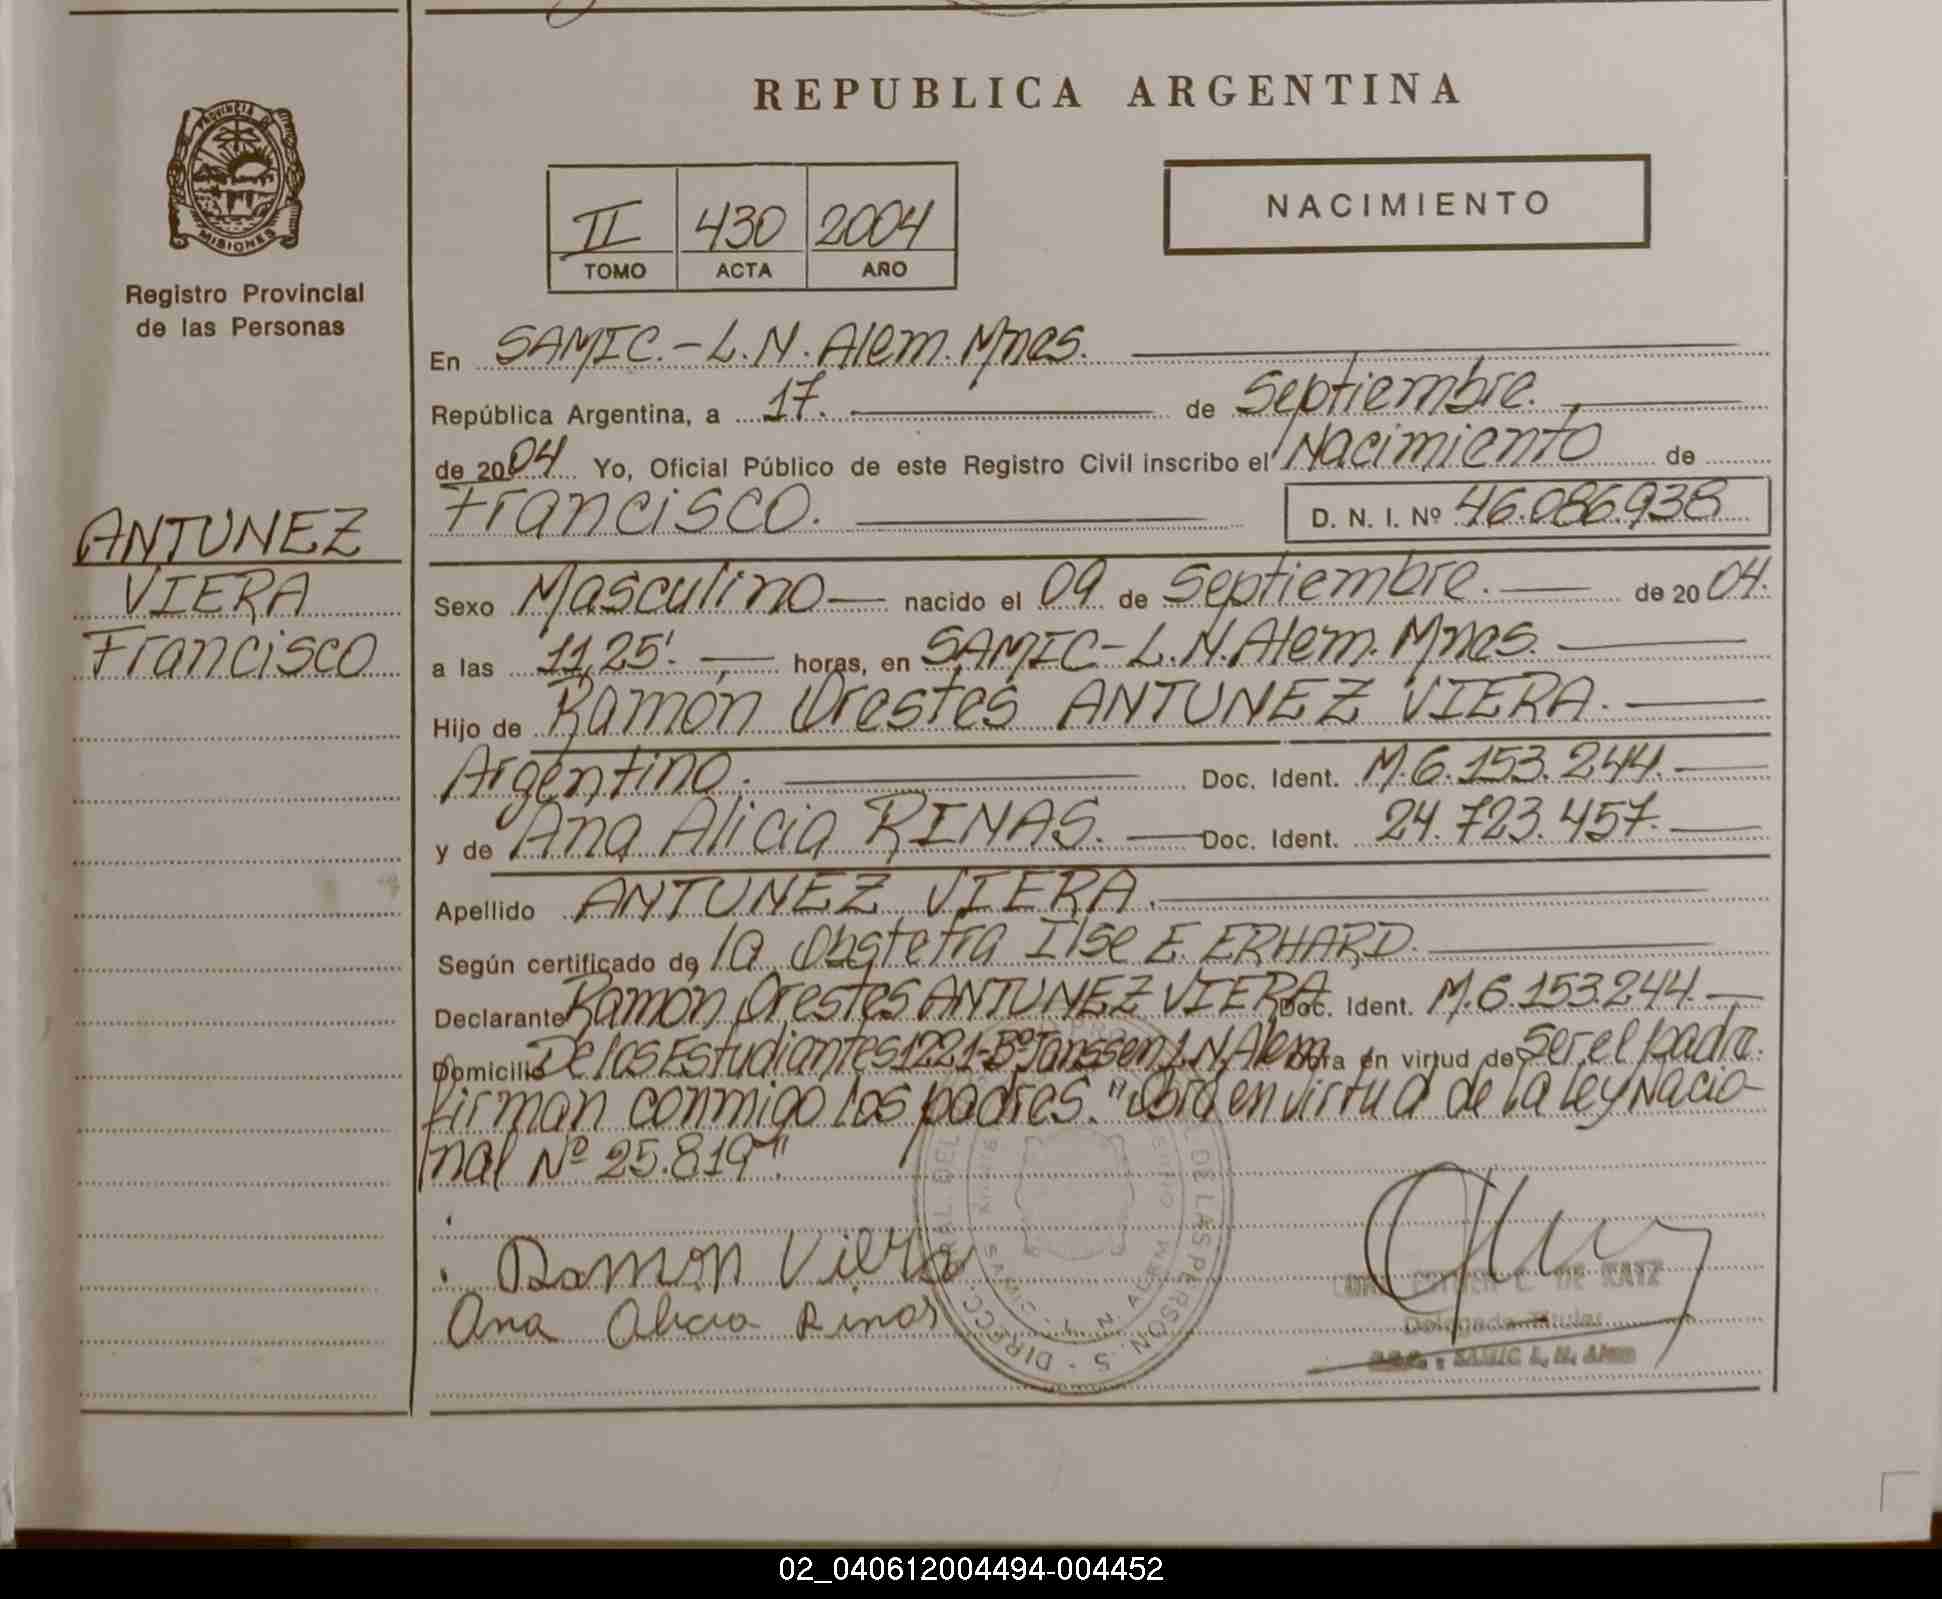 REPUBLICA ARGENTINA
PROVINCIA DE MISIONES
Registro Provincial
de las Personas
II 430 2004
TOMO ACTA AÑO
NACIMIENTO
En SAMIC.-L.N.Alem.Mnes.
República Argentina, a 17. de Septiembre.
de 2004 Yo, Oficial Público de este Registro Civil inscribo el Nacimiento de
Francisco. D. N. I. Nº 46.086.938
ANTUNEZ
VIERA
Francisco
Sexo Masculino nacido el 09 de Septiembre. de 2004.
a las 11,25'. horas, en SAMIC-L.N.Alem.Mnes.
Hijo de Ramón Orestes ANTUNEZ VIERA.
Argentino. Doc. Ident. M.6.153.244.
y de Ana Alicia RINAS. Doc. Ident. 24.723.457.
Apellido ANTUNEZ VIERA.
Según certificado de la Obstetra Ilse E. ERHARD.
Declarante Ramón Orestes ANTUNEZ VIERA Doc. Ident. M.6.153.244.
Domicilio De los Estudiantes 1221-Bº Janssen L.N.Alem Obra en virtud de Ser el padre.
Firman conmigo los padres. "Obra en virtud de la Ley Nacio-
nal Nº 25.819".
Ramon Viera
Ana Alicia Rinas
DE LAS PERSON
DIRECC.
L. N. ALEM
DE KATZ
Delegada Titular
SAMIC L. N. Alem
02_040612004494-004452